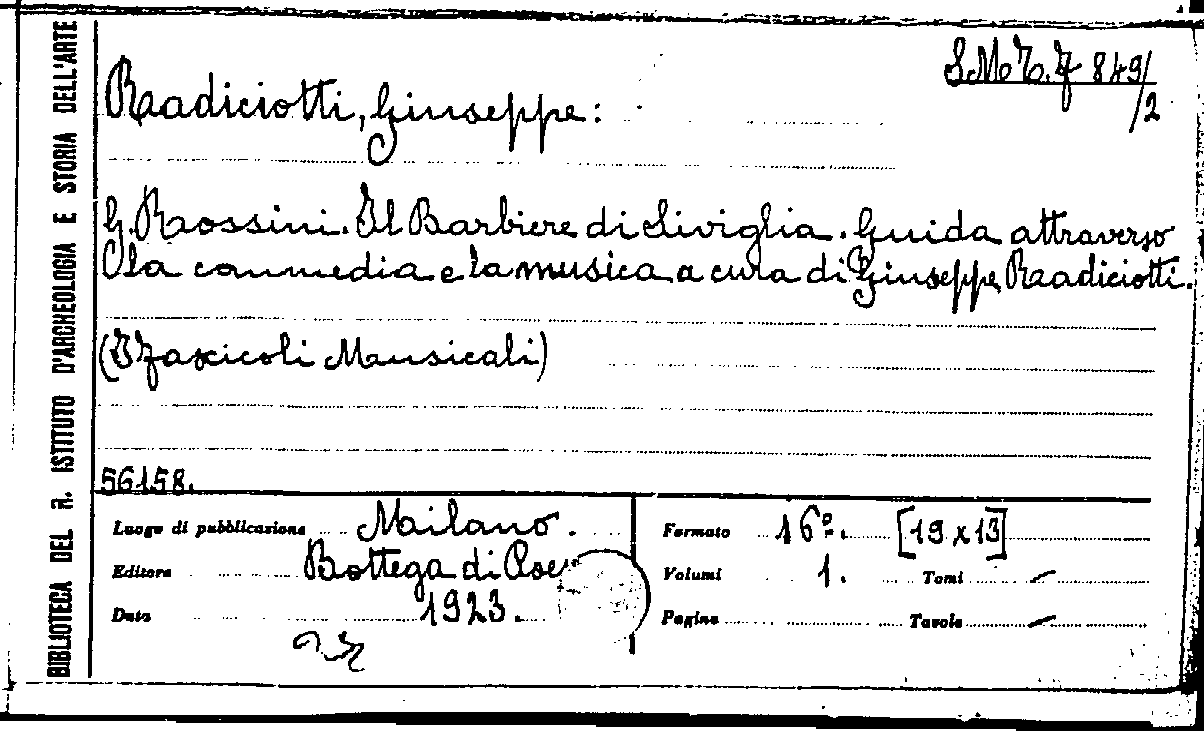 BIBLIOTECA DEL R. ISTITUTO D'ARCHEOLOGIA E STORIA DELL'ARTE
849/2
Radiciotti, Giuseppe:
G. Rossini. Il Barbiere di Siviglia. Guida attraverso
la commedia e la musica a cura di Giuseppe Radiciotti.
(I fascicoli Musicali)
56158.
Luogo di pubblicazione Milano.
Editore Bottega di Poes
Data 1923.
Formato 16º. [19 x 13]
Volumi 1. Tomi —
Pagine Tavole —